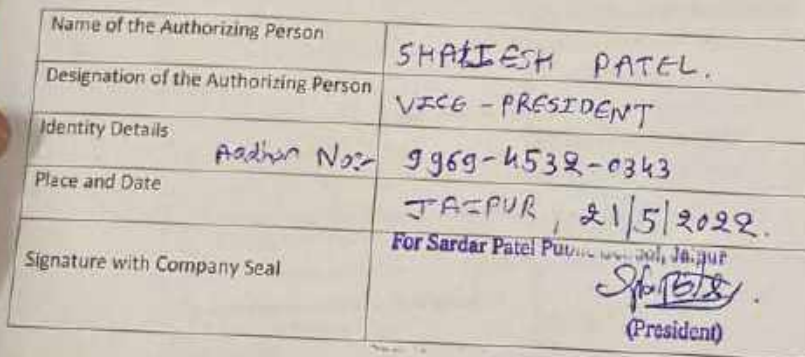 Name of the Authorizing Person
SHAILESH PATEL.
Designation of the Authorizing Person
VICE - PRESIDENT
Identity Details
Aadhar No:- 9969-4532-0343
Place and Date
JAIPUR, 21/5/2022.
Signature with Company Seal
For Sardar Patel Pub Jaipur
(President)